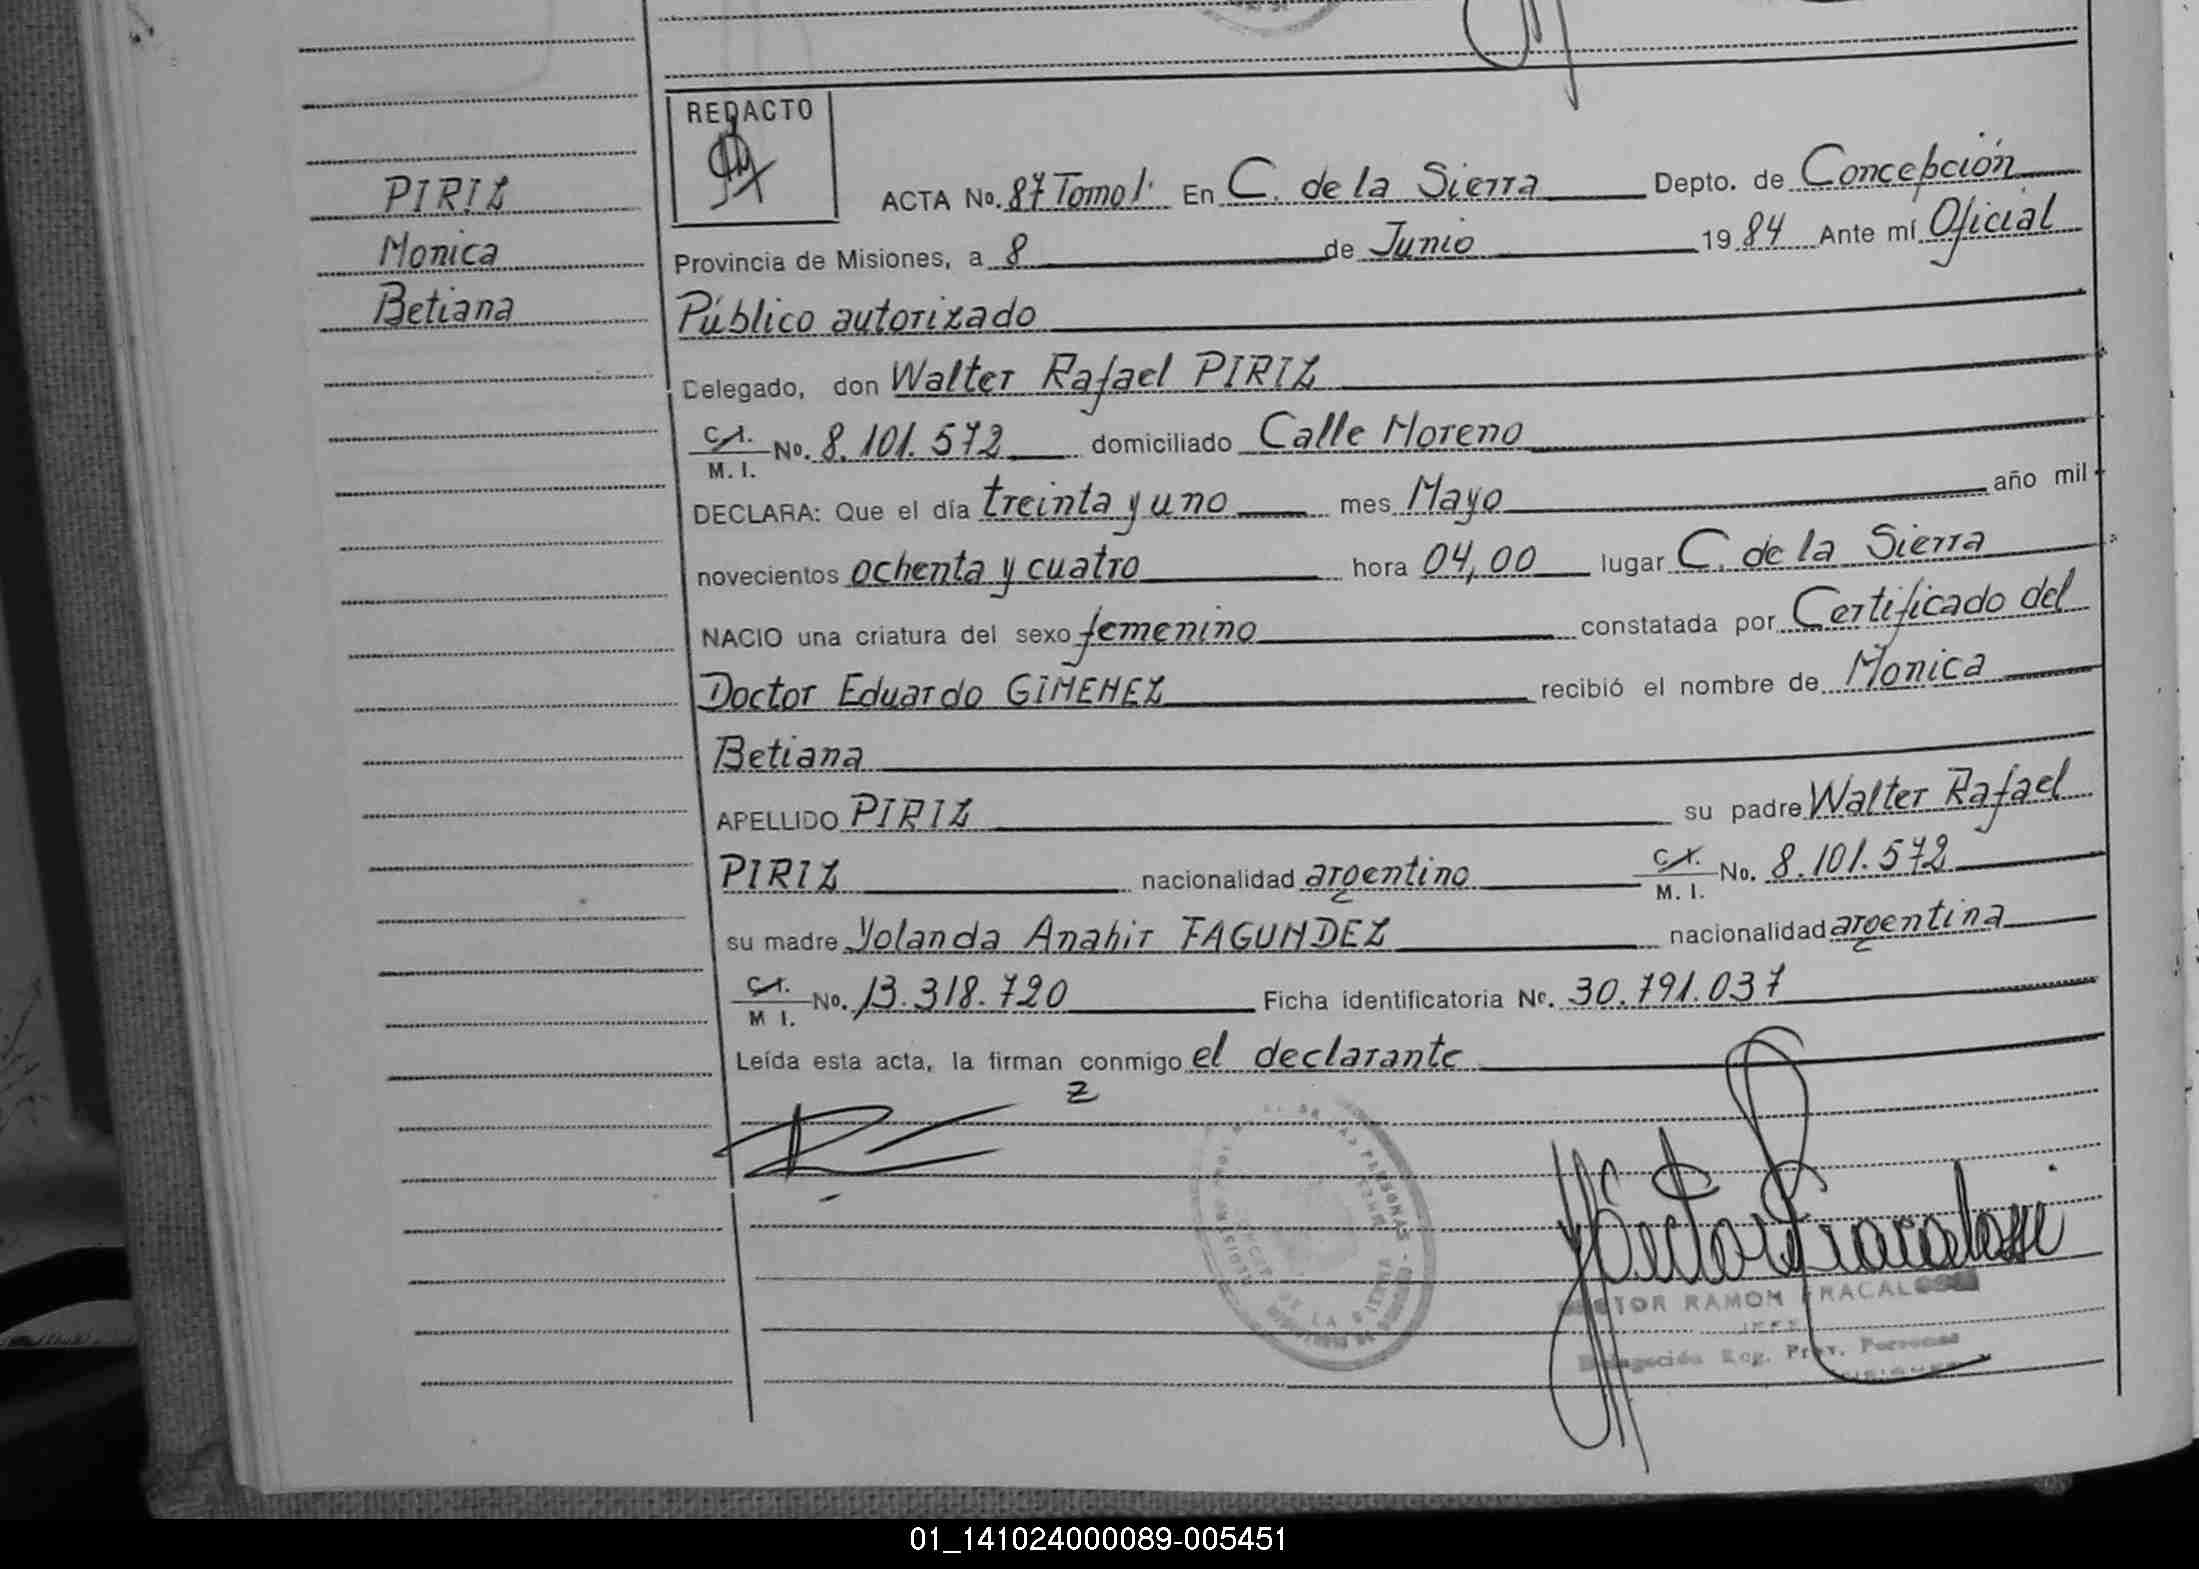 REDACTO
PIRIZ
Monica
Betiana
ACTA No. 87 Tomo I. En C. de la Sierra Depto. de Concepción
Provincia de Misiones, a 8 de Junio 19 84 Ante mí Oficial
Público autorizado
Delegado, don Walter Rafael PIRIZ
C.I. M. I. No. 8.101.572 domiciliado Calle Moreno
DECLARA: Que el día treinta y uno mes Mayo año mil
novecientos ochenta y cuatro hora 04,00 lugar C. de la Sierra
NACIO una criatura del sexo femenino constatada por Certificado del
Doctor Eduardo GIMENEZ recibió el nombre de Monica
Betiana
APELLIDO PIRIZ su padre Walter Rafael
PIRIZ nacionalidad argentino C.I. M. I. No. 8.101.572
su madre Yolanda Anahir FAGUNDEZ nacionalidad argentina
C.I. M I. No. 13.318.720 Ficha identificatoria No. 30.791.037
Leída esta acta, la firman conmigo el declarante
HECTOR RAMON FRACALOSSI
JEFE
Delegación Reg. Prov. Personas
01_141024000089-005451